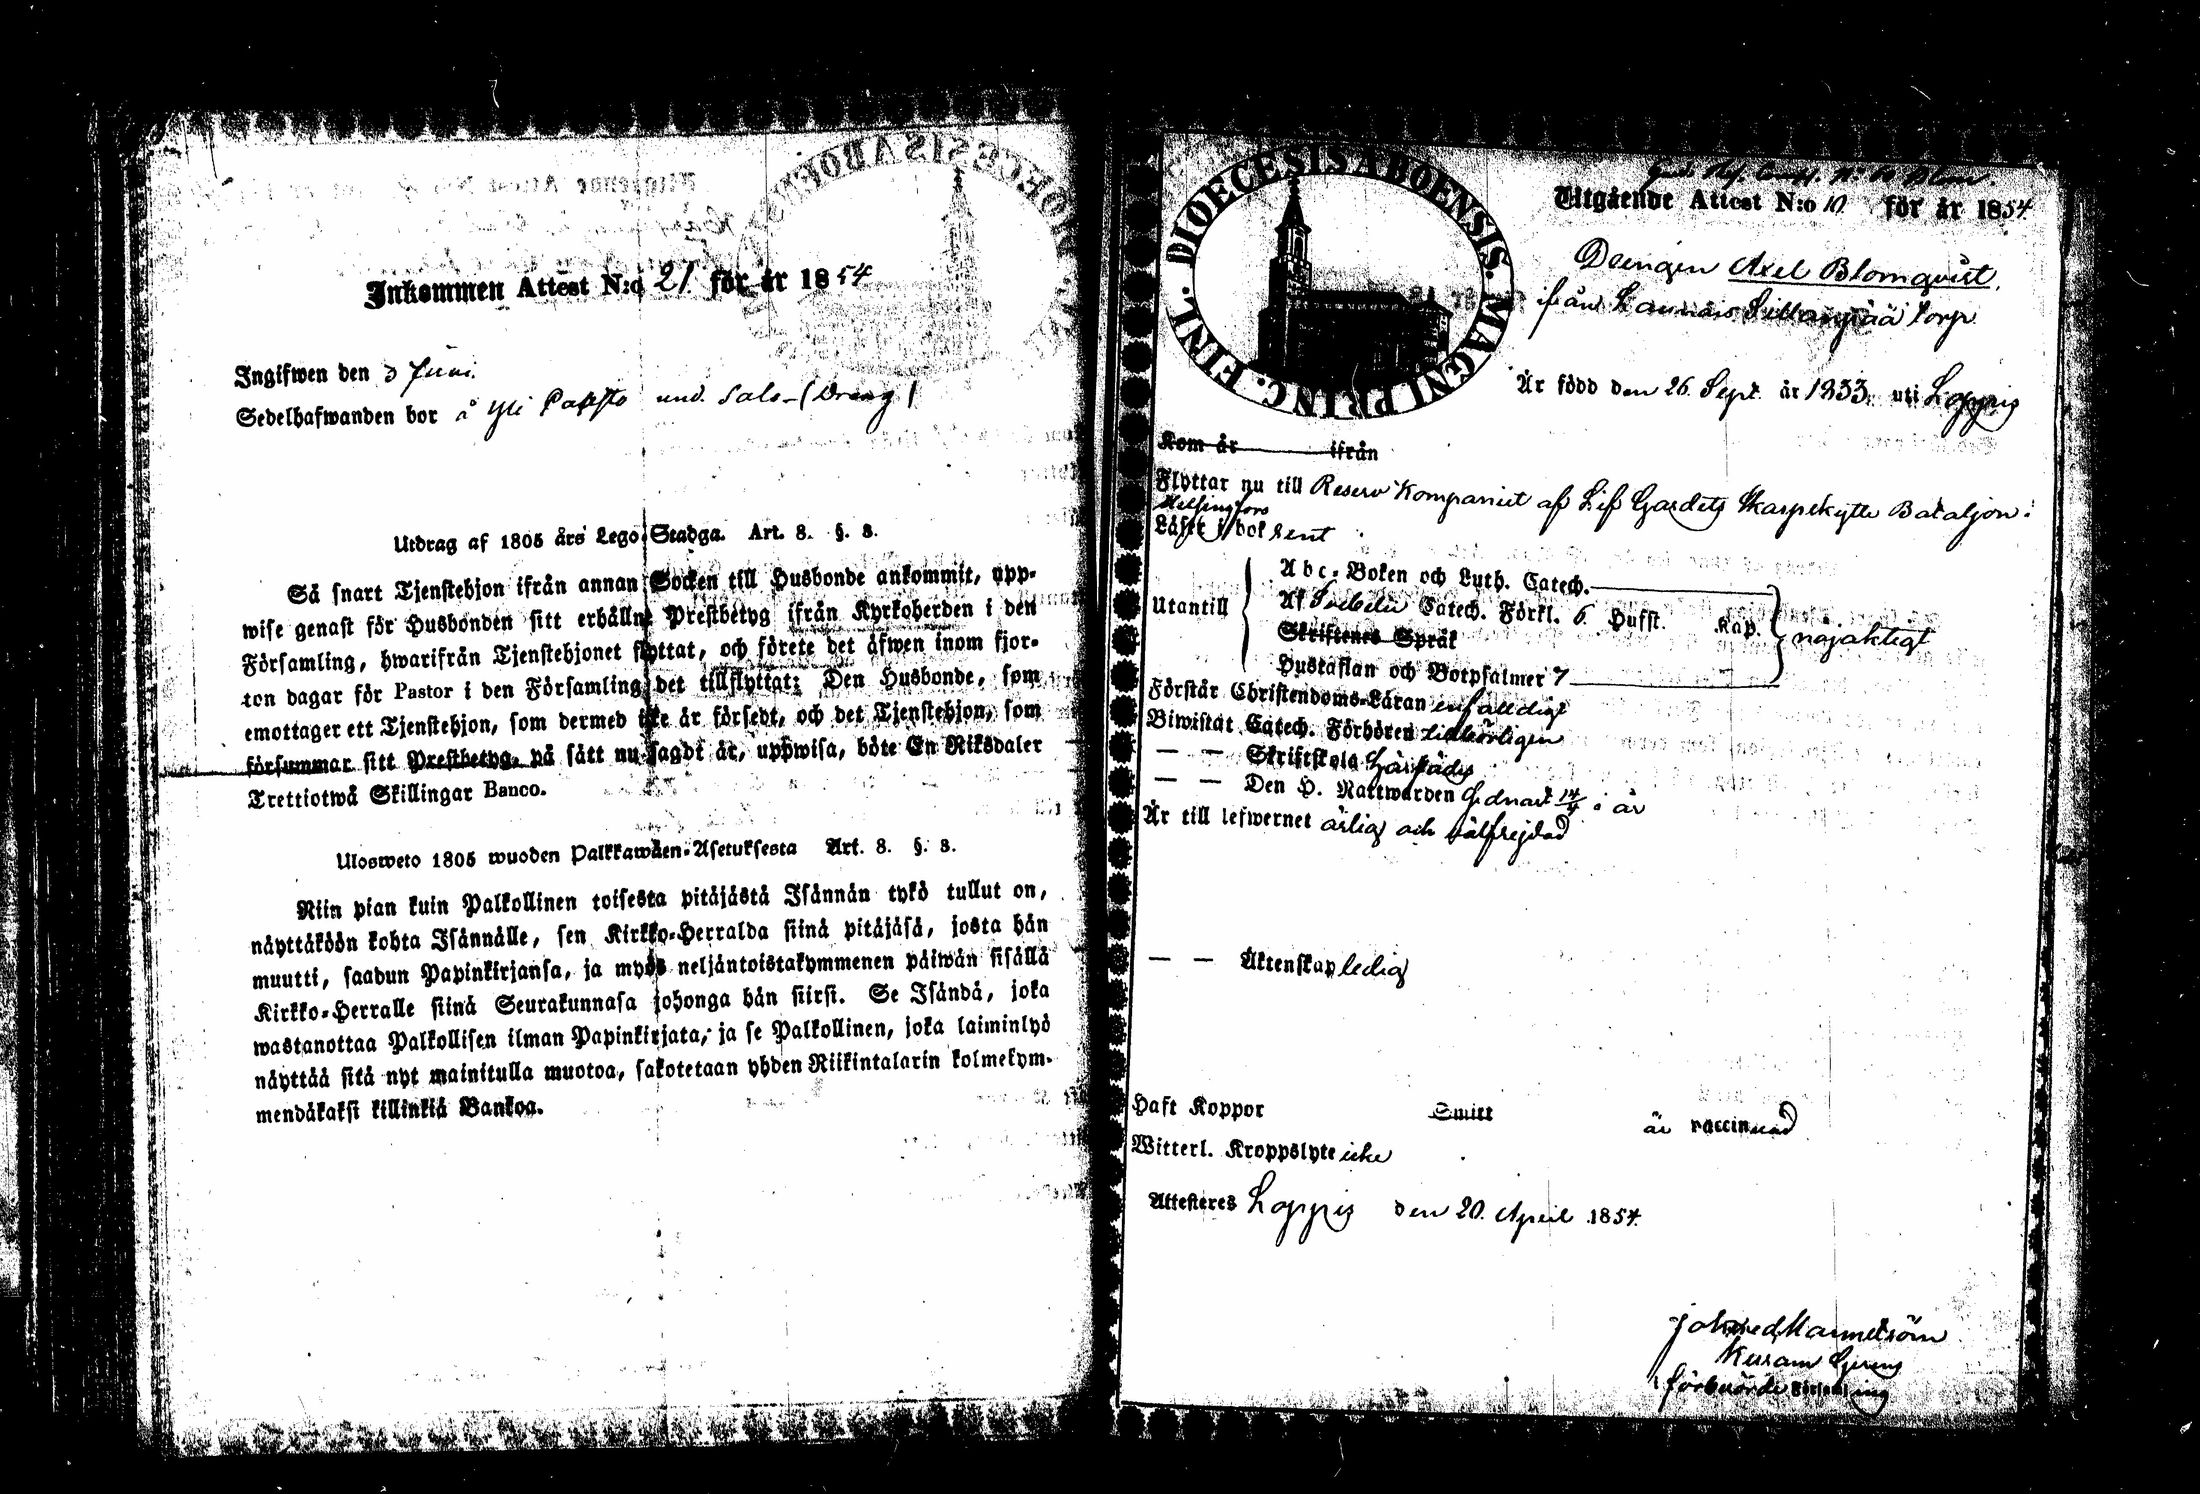 Inkommen Attest N:o 21 för år 1854
Ingifwen den 3 Juni.
Sedelhafwanden bor å Yli und. Salo-(Dräng)
Utdrag af 1805 års Lego-Stadga. Art. 8. §. 3.
Så snart Tjenstehjon ifrån annan Socken till Husbonde ankommit, upp-
wise genast för Husbonden sitt erhållne Prestbetyg ifrån Kyrkoherden i den
Församling, hwarifrån Tjenstehjonet flyttat, och förete det äfwen inom fjor-
ton dagar för Pastor i den Församling det tillflyttat; Den Husbonde, som
emottager ett Tjenstehjon, som dermed icke är försedt, och det Tjenstehjon, som
försummar sitt Prestbetyg, på sätt nu sagdt är, uppwisa, böte En Riksdaler
Trettiotwå Skillingar Banco.
Ulosweto 1805 wuoden Palkkawäen-Asetuksesta Art. 8. §. 3.
Niin pian kuin Palkollinen toisesta pitäjästä Isännän tykö tullut on,
näyttäköön kohta Isännälle, sen Kirkko-Herralda siinä pitäjäsä, josta hän
muutti, saadun Papinkirjansa, ja myös neljäntoistakymmenen päiwän sisällä
Kirkko-Herralle siinä Seurakunnasa johonga hän siirsi. Se Isändä, joka
wastanottaa Palkollisen ilman Papinkirjata, ja se Palkollinen, joka laiminlyö
näyttää sitä nyt mainitulla muotoa, sakotetaan yhden Riikintalarin kolmekym-
mendäkaksi killinkiä Bankoa.
DIOECESIS ABOENSIS. MAGNI PRINC. FINL.
Utgående Attest N:o 10 för år 1854
Drengen Axel Blomqvist,
ifrån Sillanpää torp
Är född den 26 Sept. år 1833. uti Loppis
Kom år ifrån
Flyttar nu till Reserv Kompaniet af Lif Gardets Skarpskytte Bataljon.
Helsingfors
Läser i bok rent
Abc-Boken och Luth. Catech.
Utantill Af Svebelii Catech. Förkl. 6 Hufst. Kap. nöjaktigt
Skriftenes Språk
Hustaflan och Botpsalmer 7
Förstår Christendoms-Läran enfaldigt
Biwistat Catech. Förhören
— — Skriftskola
— — Den H. Nattwarden 14/4 i år
Är till lefwernet ärlig och välfrejdad
— — Äktenskap ledig
Haft Koppor Smitt är vaccinerad
Witterl. Kroppslyte icke
Attesteras Loppis den 20. April 1854.